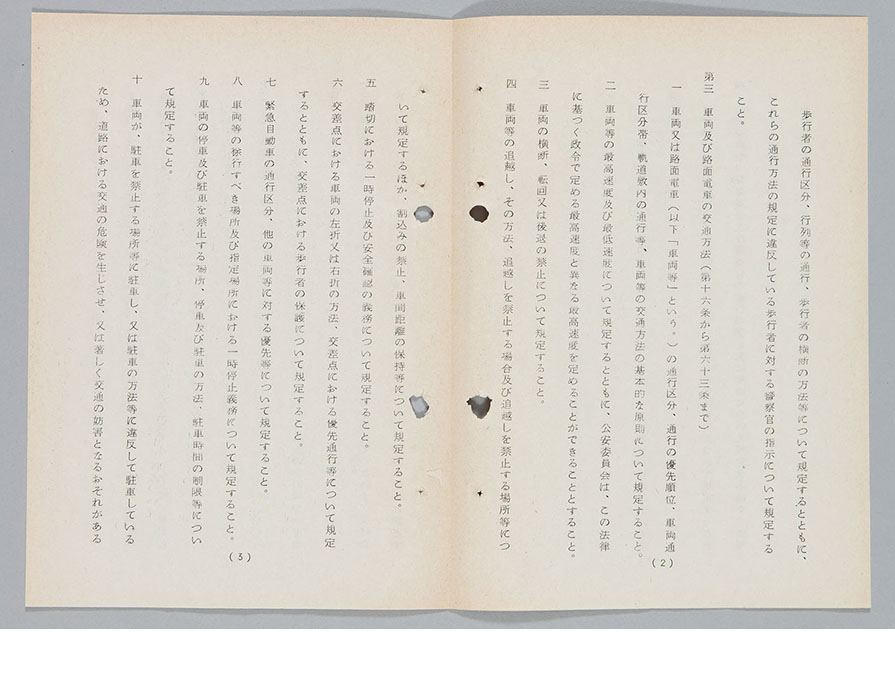 歩行者の通行区分、行列等の通行、歩行者の横断の方法等について規定するとともに、
これらの通行方法の規定に違反している歩行者に対する警察官の指示について規定する
こと。
第三 車両及び路面電車の交通方法（第十六条から第六十三条まで）
一 車両又は路面電車（以下「車両等」という。）の通行区分、通行の優先順位、車両通
行区分帯、軌道敷内の通行等、車両等の交通方法の基本的な原則について規定すること。
二 車両等の最高速度及び最低速度について規定するとともに、公安委員会は、この法律
に基づく政令で定める最高速度と異なる最高速度を定めることができることとすること。
三 車両の横断、転回又は後退の禁止について規定すること。
四 車両等の追越し、その方法、追越しを禁止する場合及び追越しを禁止する場所等につ
(2)
いて規定するほか、割込みの禁止、車間距離の保持等について規定すること。
五 踏切における一時停止及び安全確認の義務について規定すること。
六 交差点における車両の左折又は右折の方法、交差点における優先通行等について規定
するとともに、交差点における歩行者の保護について規定すること。
七 緊急自動車の通行区分、他の車両等に対する優先等について規定すること。
八 車両等の徐行すべき場所及び指定場所における一時停止義務について規定すること。
九 車両の停車及び駐車を禁止する場所、停車及び駐車の方法、駐車時間の制限等につい
て規定すること。
十 車両が、駐車を禁止する場所等に駐車し、又は駐車の方法等に違反して駐車している
ため、道路における交通の危険を生じさせ、又は著しく交通の妨害となるおそれがある
(3)